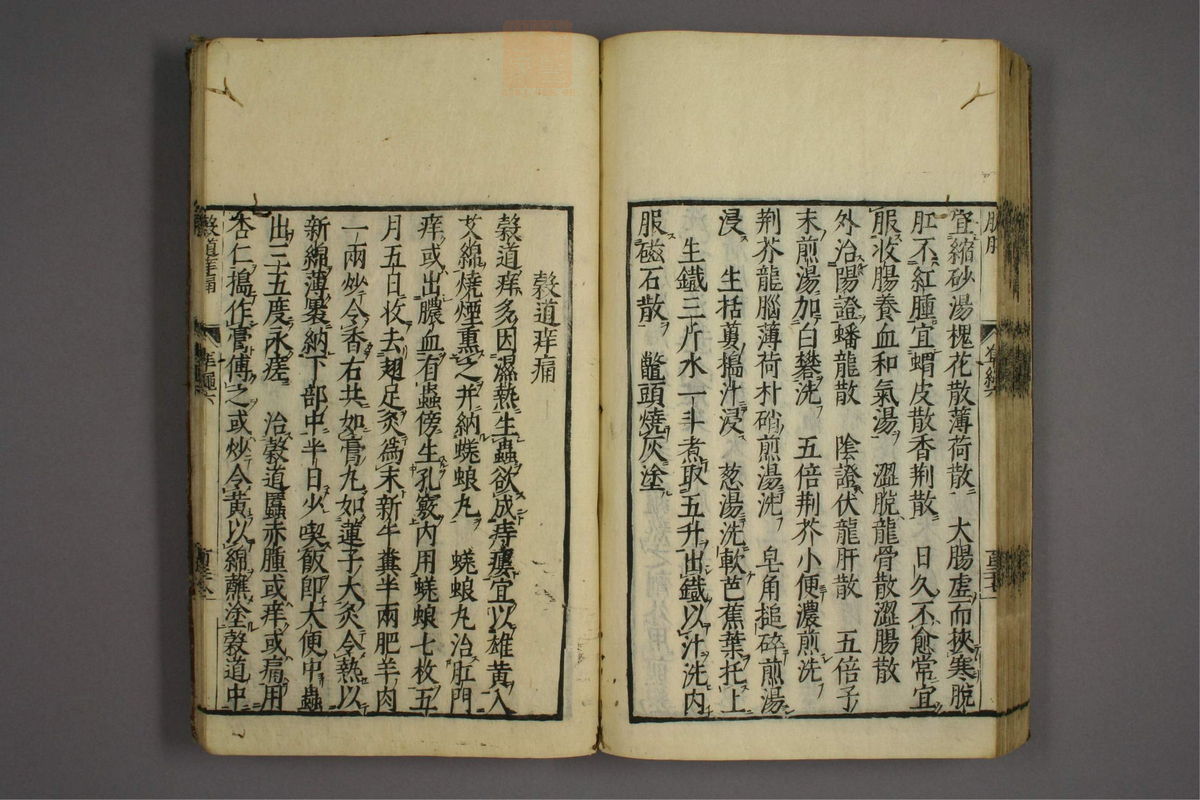 宜縮砂湯槐花散薄荷散 大腸虛而挾寒脫
肛不紅腫宜蝟皮散香荊散 日久不愈常宜
服液腸養血和氣湯 澀脫龍骨散澀腸散
外治陽證蟠龍散 陰證伏龍肝散 五倍子
末煎湯加白礬洗 五倍荊芥小便濃煎洗
荊芥龍腦薄荷朴硝煎湯洗 皂角搥碎煎湯
浸 生栝蔞搗汁浸 葱湯洗軟芭蕉葉托上
生鐵三斤水一斗煮取五升出鐵以汁洗內
服磁石散 鼈頭燒灰塗
穀道痒痛
穀道痒多因濕熱生蟲欲成痔瘻宜以雄黃入
艾綿燒煙熏之并納蜣蜋丸 蜣蜋丸治肛門
痒或出膿血有蟲傍生孔竅內用蜣蜋七枚五
月五日收去翅足炙爲末新牛糞半兩肥羊肉
一兩炒令香右共如膏丸如蓮子大炙令熱以
新綿薄裹納下部中半日少喫飯即大便中蟲
出三五度永瘥 治穀道䘌蟲赤腫或痒或痛用
杏仁搗作膏傅之或炒令黃以綿蘸塗穀道中
穀道痒痛
準繩六